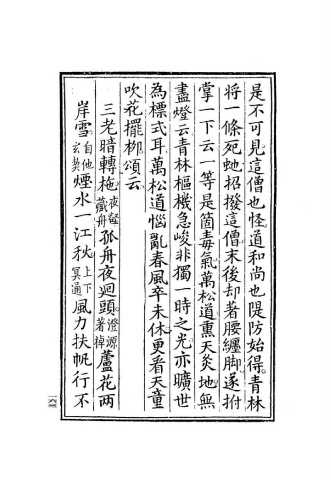 是不可見這僧也怪道和尚也隄防始得青林
將一條死虵招撥這僧末後却著腰纏脚遂拊
掌一下云一等是箇毒氣萬松道熏天炙地無
盡燈云青林樞機急峻非獨一時之光亦曠世
為標式耳萬松道惱亂春風卒未休更看天童
吹花擺柳頌云
三老暗轉柂夜壑藏舟孤舟夜迴頭澄源著棹蘆花兩
岸雪自他玄契煙水一江秋上下冥通風力扶帆行不